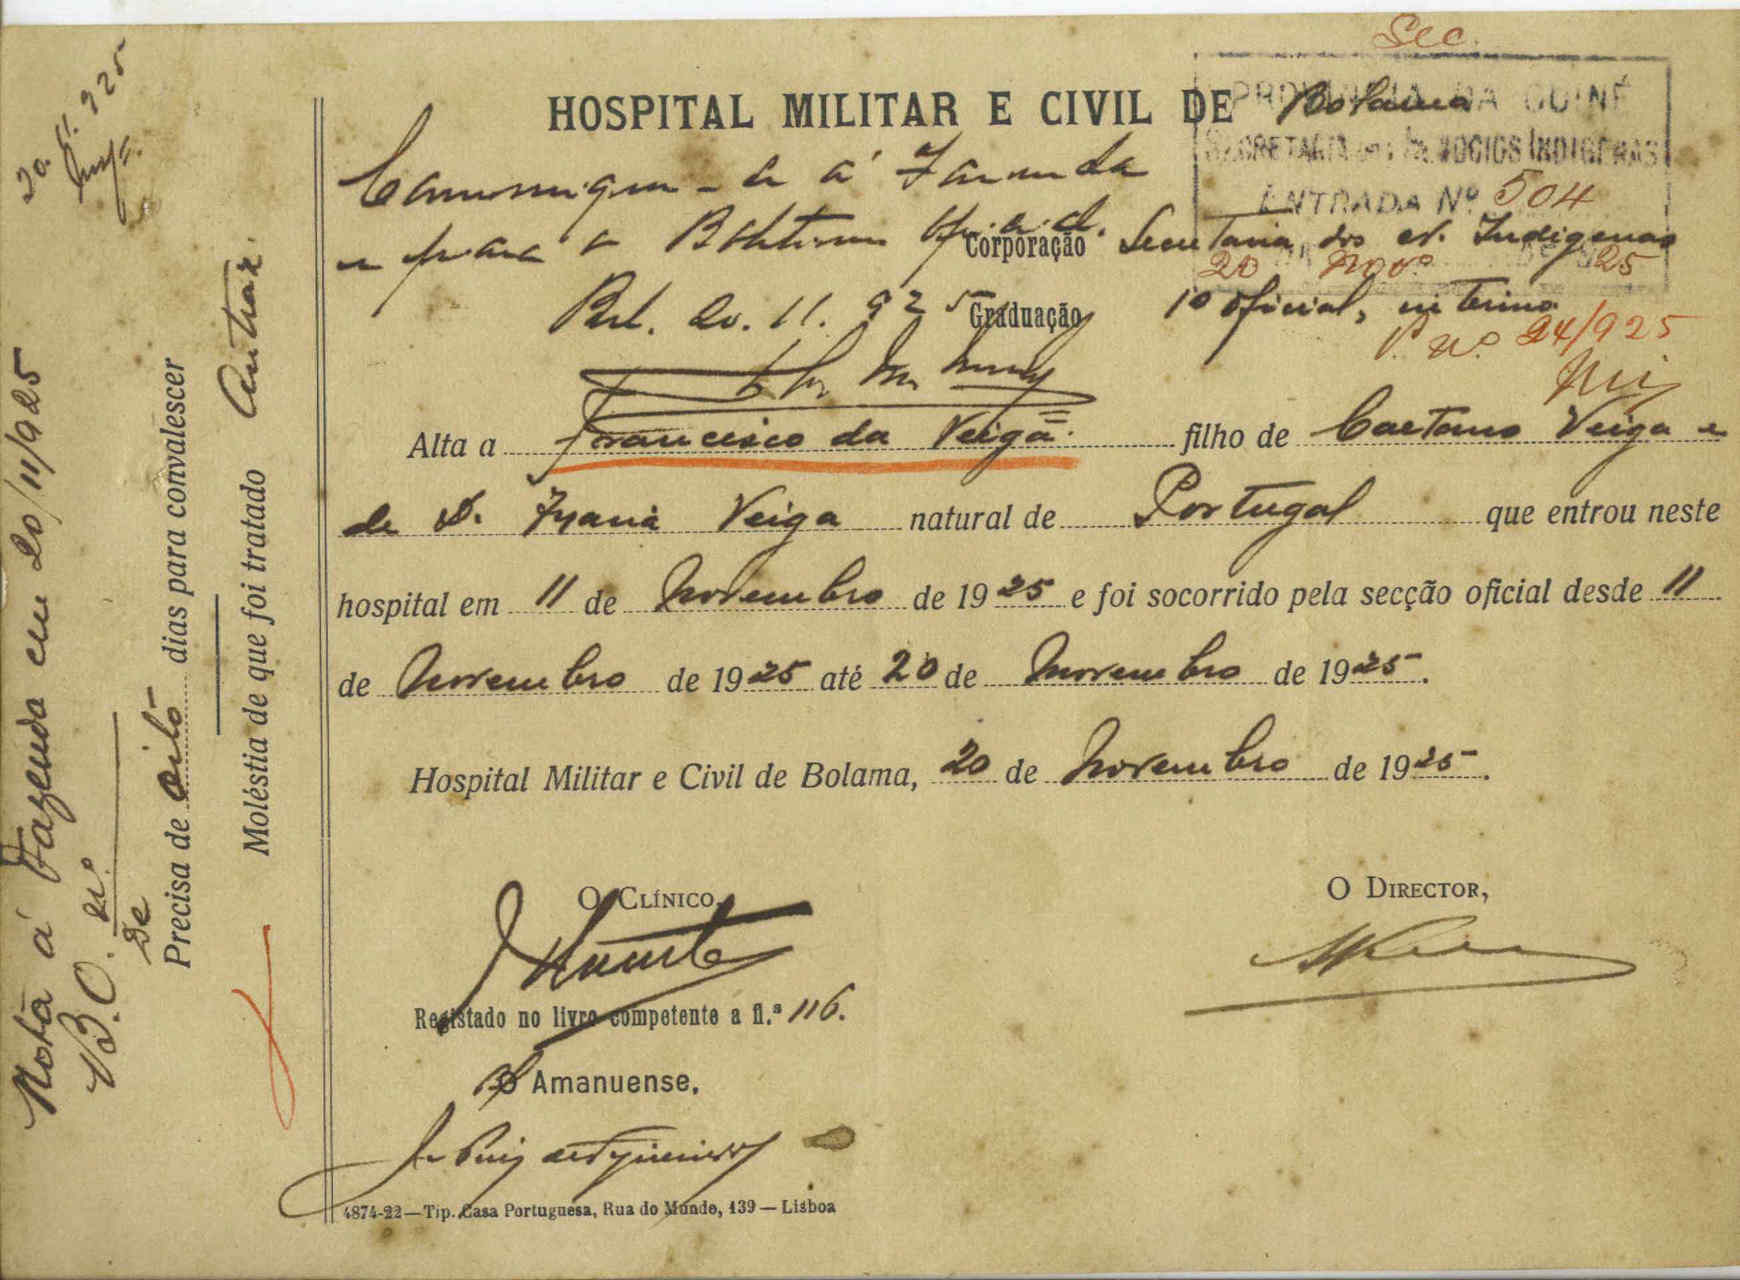 Sec.
HOSPITAL MILITAR E CIVIL DE Bolama
PROVINCIA DA GUINÉ
SECRETARIA DOS NEGOCIOS INDIGENAS
ENTRADA Nº 504
20 Novº 25
Comunique-se á Fazenda
e para o Boletim Oficial.
Bol. 20.11.925
Corporação Secretaria dos N. Indigenas
Graduação 1º oficial, interino
P. nº 24/925
Alta a Francisco da Veiga filho de Caetano Veiga e
de D. Maria Veiga natural de Portugal que entrou neste
hospital em 11 de Novembro de 1925 e foi socorrido pela secção oficial desde 11
de Novembro de 1925 até 20 de Novembro de 1925.
Hospital Militar e Civil de Bolama, 20 de Novembro de 1925.
O CLÍNICO,
O DIRECTOR,
Registado no livro competente a fl.ª 116.
O Amanuense,
4874-22—Tip. Casa Portuguesa, Rua do Mundo, 139—Lisboa
20.11.925
Nota á Fazenda em 20/11/925
B.O. nº
de
Precisa de oito dias para convalescer
Moléstia de que foi tratado Antraz.